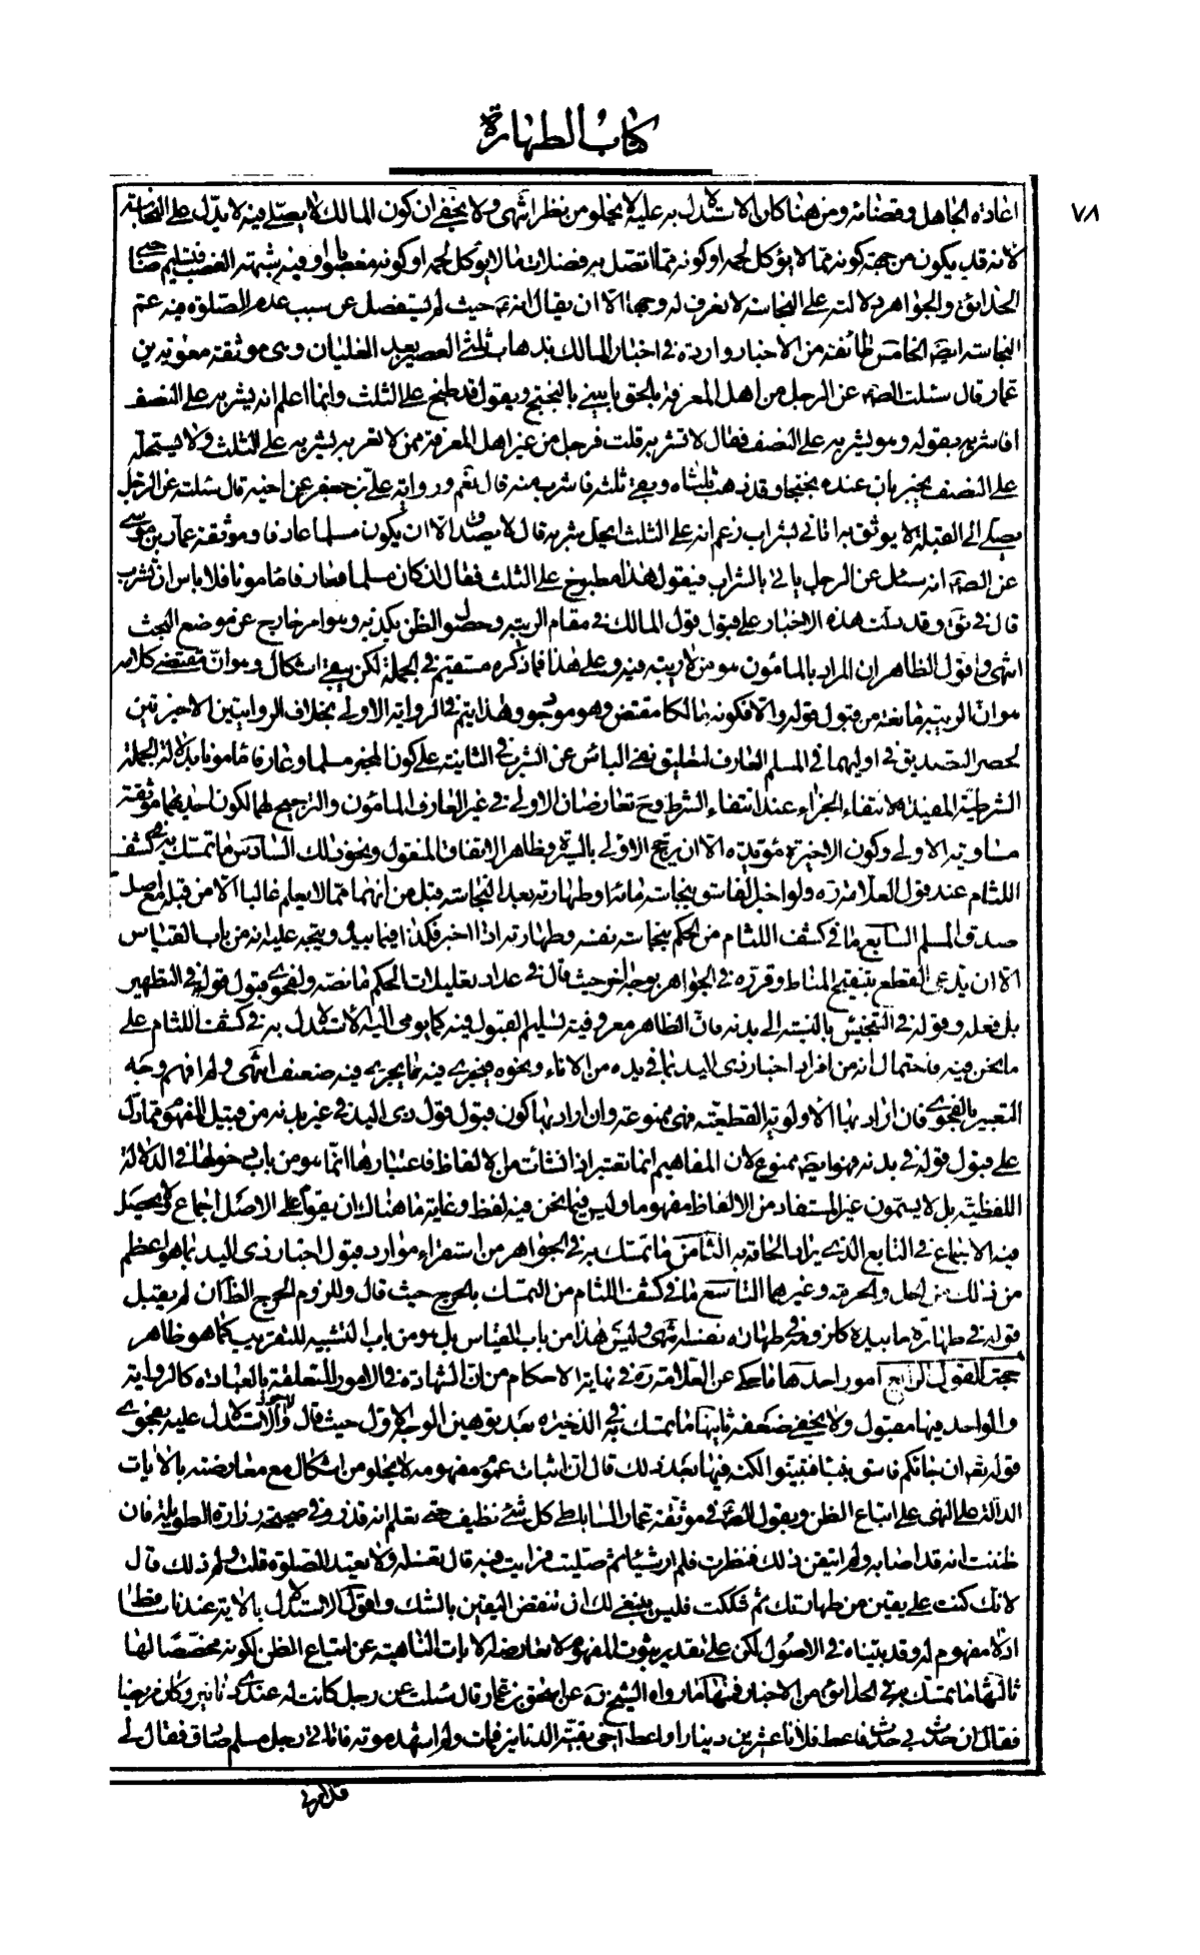 كتاب الطهارة
٧٨
اعادة الجاهل وقضائه ومن هنا كان الاستدلال به عليه لا يخلو من نظر انتهى ولا يخفى ان كون المالك لا يصلى فيه لا يدل على النجاسة
لانه قد يكون من جهة كونه مما لا يؤكل لحمه او كونه مما اتصل به فضلات ما لا يؤكل لحمه او كونه مغصوبا او فيه شبهة الغصب فتسليم صاحبى
الحدائق والجواهر دلالته على النجاسة لا نعرف له وجها الا ان يقال انه ع حيث لم يستفصل عن سبب عدم الصلوة فيه عم
النجاسة ايضا الخامس طائفة من الاخبار واردة فى اخبار المالك بذهاب ثلثى العصير بعد الغليان وهى موثقة معوية بن
عمار قال سئلت الصم عن الرجل من اهل المعرفة بالحق ياتينى بالبختج ويقول قد طبخ على الثلث وانما اعلم انه يشربه على النصف
افاشربه بقوله وهو يشربه على النصف فقال لا تشربه قلت فرجل من غير اهل المعرفة ممن لا نعرفه يشربه على الثلث ولا يستحله
على النصف يخبر بان عنده بختجا وقد ذهب ثلثاه وبقى ثلثه فاشرب منه قال نعم ورواية على بن جعفر عن اخيه قال سئلته عن الرجل
يصلى الى القبلة لا يوثق به اتانى بشراب زعم انه على الثلث ايحل شربه قال لا يصدق الا ان يكون مسلما عارفا وموثقة عمار بن موسى
عن الصم انه سئل عن الرجل ياتى بالشراب فيقول هذا مطبوخ على الثلث فقال ان كان مسلما عارفا مامونا فلا باس ان يشرب
قال فى ئق وقد دلت هذه الاخبار على قبول قول المالك فى مقام الريبة وحصول الظن بكذبه وهو امر خارج عن موضع البحث
انتهى واقول الظاهر ان المراد بالمامون هو من لا ريبة فيه وعلى هذا فما ذكره مستقيم فى الجملة لكن يبقى اشكال وهو ان مقتضى كلامه
هو ان الريبة مانعة من قبول قوله والا فكونه مالكا مقتض وهو موجود وهذا يتم فى الرواية الاولى بخلاف الروايتين الاخيرتين
لحصر التصديق فى اوليهما فى المسلم العارف لتعليق نفى الباس عن الشرب فى الثانية على كون المخبر مسلما وعارفا مامونا بدلالة الجملة
الشرطية المفيدة لانتفاء الجزاء عند انتفاء الشرط وح تعارضان الاولى فى غير العارف المامون والترجيح لهما لكون احديهما موثقة
مساوية الاولى وكون الاخيرة مؤيدة الا ان يرجح الاولى بالسيرة وظاهر الاتفاق المنقول ونحو ذلك السادس ما تمسك به فى كشف
اللثام عند قول العلامة ره ولو اخبر الفاسق بنجاسة مائه او طهارته بعد النجاسة قبل من انهما مما لا يعلم غالبا الا من قبله مع اصل
صدق المسلم السابع ما فى كشف اللثام من الحكم بنجاسة نفسه وطهارته اذا اخبر فكذا فيما بيده ويتجه عليه انه من باب القياس
الا ان يدعى القطع بتنقيح المناط وقرره فى الجواهر بوجه اخر حيث قال فى عداد تعليلات الحكم ما نصه ولفحوى قبول قوله فى التطهير
بل فعله وقوله فى التنجيس بالنسبة الى بدنه فان الظاهر معروفية تسليم القبول فيه كما يومى اليه الاستدلال به فى كشف اللثام على
ما نحن فيه فاحتمال انه من افراد اخبار ذى اليد بما فى يده من الاناء ونحوه فيجرى فيه ما يجرى فيه ضعيف انتهى ولم افهم وجه
التعبير بالفحوى فان اراد بها الاولوية القطعية فهى ممنوعة وان اراد بها كون قبول قول ذى اليد فى غير بدنه من قبيل المفهوم مما دل
على قبول قوله فى بدنه فهو ايضا ممنوع لان المفاهيم انما تعتبر اذا نشات من الالفاظ فاعتبارها انما هو من باب دخولها فى الدلالة
اللفظية بل لا يسمون غير المستفاد من الالفاظ مفهوما وليس فيما نحن فيه لفظ وغاية ما هناك ان يقوم على الاصل اجماع لم يحصل
فيه الاجماع فى التابع الذى يراد الحاقه به الثامن ما تمسك به فى الجواهر من استقراء موارد قبول اخبار ذى اليد بما هو اعظم
من ذلك من الحل والحرمة وغيرهما التاسع ما فى كشف اللثام من التمسك بالحرج حيث قال وللزوم الحرج الظ ان لم يقبل
قوله فى طهارة ما بيده كلزومه فى طهارة نفسه انتهى وليس هذا من باب القياس بل هو من باب التشبيه للتقريب كما هو ظاهر
حجة القول الرابع امور احدها ما حكى عن العلامة ره فى نهاية الاحكام من ان الشهادة فى الامور المتعلقة بالعبادة كالرواية
والواحد فيها مقبول ولا يخفى ضعفه ثانيها ما تمسك به فى الذخيره بعد توهين الوجه الاول حيث قال والاجود الاستدلال عليه بفحوى
قوله تعم ان جائكم فاسق بنبا فتبينوا لكنه فيها بعد ذلك قال ان اثبات عموم مفهومه لا يخلو من اشكال مع معارضته بالايات
الدالة على النهى على اتباع الظن وبقول الصم فى موثقة عمار الساباطى كل شئ نظيف حتى تعلم انه قذر وفى صحيحة زرارة الطويلة فان
ظننت انه قد اصابه ولم اتيقن ذلك فنظرت فلم ار شيئا ثم صليت فرايت فيه قال تغسله ولا تعيد الصلوة قلت ولم ذلك قال
لانك كنت على يقين من طهارتك ثم شككت فليس ينبغى لك ان تنقض اليقين بالشك واقول الاستدلال بالاية عندنا ساقط
اذ لا مفهوم له وقد بيناه فى الاصول لكن على تقدير ثبوت المفهوم لا تعارضه الايات الناهية عن اتباع الظن لكونه مخصصا لها
ثالثها ما تمسك به فى الحدائق من الاخبار فمنها ما رواه الشيخ ره عن اسحق بن عمار قال سئلت عن رجل كانت له عندى دنانير وكان مريضا
فقال ان حدث بى حدث فاعط فلانا عشرين دينارا واعط اخى بقية الدنانير فمات ولم اشهد موته فاتانى رجل مسلم صادق فقال لى